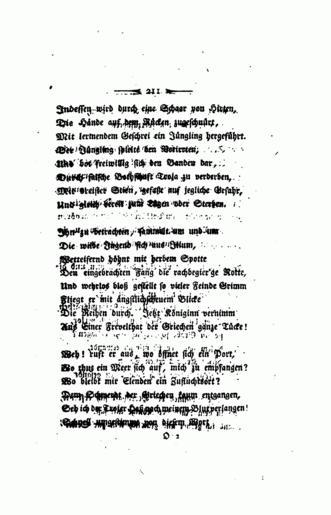 211
Indessen wird durch eine Schaar von Hirten,
Die Hände auf dem Rücken zugeschnürt,
Mit lermendem Geschrei ein Jüngling hergeführt.
Der Jüngling spielte den Verirrten,
Und bot freiwillig sich den Banden dar,
Durch falsche Bothschaft Troja zu verderben,
Mit dreister Stirn, gefaßt auf jegliche Gefahr,
Und gleich bereit zum Lügen oder Sterben.
Ihn zu betrachten, sammelt um und um
Die wilde Jugend sich aus Ilium,
Wetteifernd höhnt mit herbem Spotte
Den eingebrachten Fang die rachbegier'ge Rotte,
Und wehrlos bloß gestellt so vieler Feinde Grimm
Fliegt er mit ängstlichscheuem Blicke
Die Reihen durch. Jetzt Königinn vernimm
Aus Einer Frevelthat der Griechen ganze Tücke!
Weh! ruft er aus, wo öffnet sich ein Port,
Wo thut ein Meer sich auf, mich zu empfangen?
Wo bleibt mir Elenden ein Zufluchtsort?
Dem Schwerdt der Griechen kaum entgangen,
Seh ich der Trojer Haß nach meinem Blut verlangen!
Schnell umgestimmt von diesem Wort
O 2